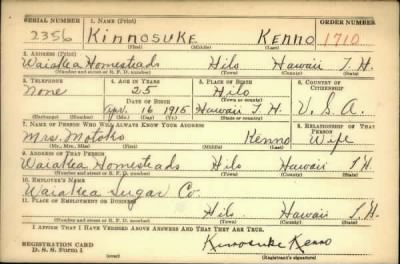 SERIAL NUMBER 1. NAME (Print) ORDER NUMBER
2356 KINNOSUKE KENNO 1710
(First) (Middle) (Last)
2. ADDRESS (Print)
Waiakea Homesteads Hilo Hawaii T.H.
(Number and street or R. F. D. number) (Town) (County) (State)
3. TELEPHONE 4. AGE IN YEARS 5. PLACE OF BIRTH 6. COUNTRY OF CITIZENSHIP
None 25 Hilo
(Town or county)
DATE OF BIRTH
Apr. 16 1915 Hawaii T.H. U.S.A.
(Exchange) (Number) (Mo.) (Day) (Yr.) (State or country)
7. NAME OF PERSON WHO WILL ALWAYS KNOW YOUR ADDRESS 8. RELATIONSHIP OF THAT PERSON
Mrs. Motoko Kenno Wife
(Mr., Mrs., Miss) (First) (Middle) (Last)
9. ADDRESS OF THAT PERSON
Waiakea Homesteads Hilo Hawaii T.H.
(Number and street or R. F. D. number) (Town) (County) (State)
10. EMPLOYER'S NAME
Waiakea Sugar Co.
11. PLACE OF EMPLOYMENT OR BUSINESS
Hilo Hawaii T.H.
(Number and street or R. F. D. number) (Town) (County) (State)
I AFFIRM THAT I HAVE VERIFIED ABOVE ANSWERS AND THAT THEY ARE TRUE.
REGISTRATION CARD
D. S. S. Form 1 Kinnosuke Kenno
(Registrant's signature)